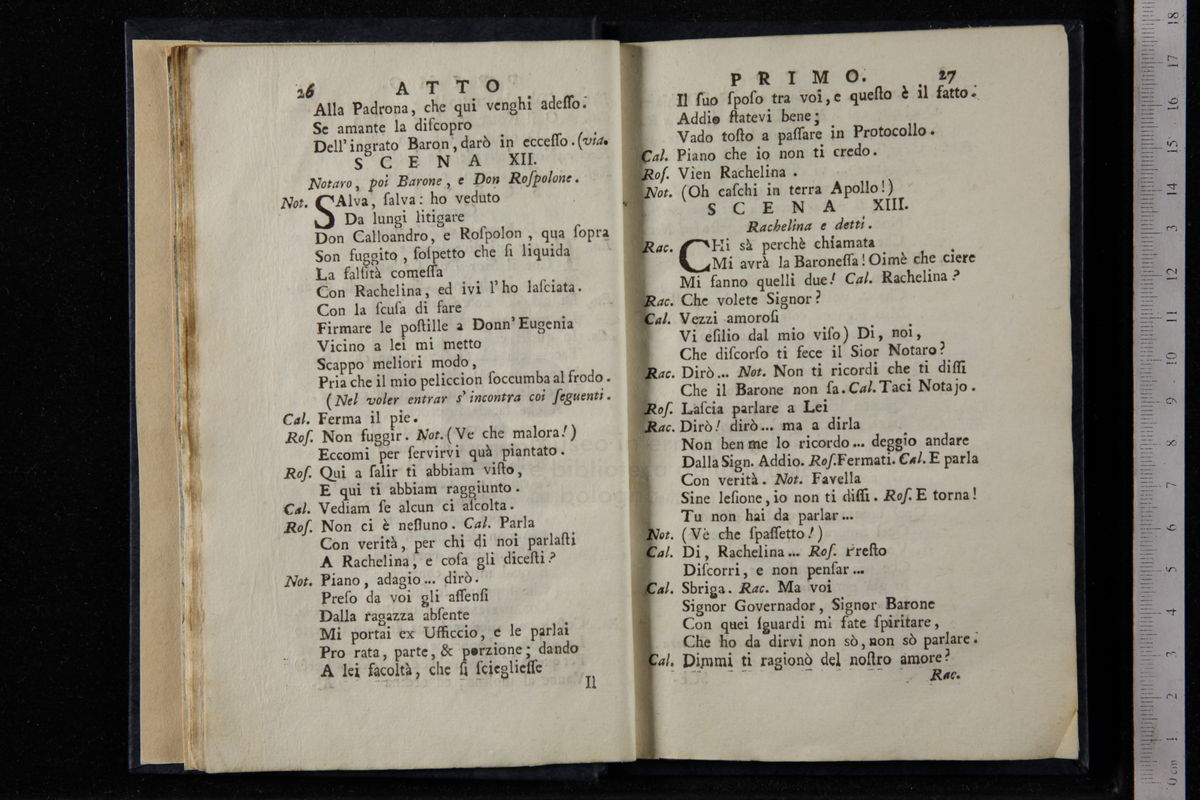 26 ATTO
Alla Padrona, che qui venghi adeſſo.
Se amante la diſcopro
Dell'ingrato Baron, darò in ecceſſo. (via.
SCENA XII.
Notaro, poi Barone, e Don Roſpolone.
Not. SAlva, ſalva: ho veduto
Da lungi litigare
Don Calloandro, e Roſpolon, qua ſopra
Son fuggito, ſoſpetto che ſi liquida
La falſità comeſſa
Con Rachelina, ed ivi l'ho laſciata.
Con la ſcuſa di fare
Firmare le poſtille a Donn'Eugenia
Vicino a lei mi metto
Scappo meliori modo,
Pria che il mio peliccion ſoccumba al frodo.
(Nel voler entrar s'incontra coi ſeguenti.
Cal. Ferma il pie.
Roſ. Non fuggir. Not. (Ve che malora!)
Eccomi per ſervirvi quà piantato.
Roſ. Qui a ſalir ti abbiam viſto,
E qui ti abbiam raggiunto.
Cal. Vediam ſe alcun ci aſcolta.
Roſ. Non ci è neſſuno. Cal. Parla
Con verità, per chi di noi parlaſti
A Rachelina, e coſa gli diceſti?
Not. Piano, adagio... dirò.
Preſo da voi gli aſſenſi
Dalla ragazza abſente
Mi portai ex Ufficcio, e le parlai
Pro rata, parte, & porzione; dando
A lei facoltà, che ſi ſcieglieſſe
Il
PRIMO. 27
Il ſuo ſpoſo tra voi, e queſto è il fatto.
Addio ſtatevi bene;
Vado toſto a paſſare in Protocollo.
Cal. Piano che io non ti credo.
Roſ. Vien Rachelina.
Not. (Oh caſchi in terra Apollo!)
SCENA XIII.
Rachelina e detti.
Rac. CHi sà perchè chiamata
Mi avrà la Baroneſſa! Oimè che ciere
Mi fanno quelli due! Cal. Rachelina?
Rac. Che volete Signor?
Cal. Vezzi amoroſi
Vi eſilio dal mio viſo) Di, noi,
Che diſcorſo ti fece il Sior Notaro?
Rac. Dirò... Not. Non ti ricordi che ti diſſi
Che il Barone non ſa. Cal. Taci Notajo.
Roſ. Laſcia parlare a Lei
Rac. Dirò! dirò... ma a dirla
Non ben me lo ricordo... deggio andare
Dalla Sign. Addio. Roſ. Fermati. Cal. E parla
Con verità. Not. Favella
Sine leſione, io non ti diſſi. Roſ. E torna!
Tu non hai da parlar...
Not. (Vè che ſpaſſetto!)
Cal. Di, Rachelina... Roſ. Preſto
Diſcorri, e non penſar...
Cal. Sbriga. Rac. Ma voi
Signor Governador, Signor Barone
Con quei ſguardi mi fate ſpiritare,
Che ho da dirvi non sò, non sò parlare.
Cal. Dimmi ti ragionò del noſtro amore?
Rac.